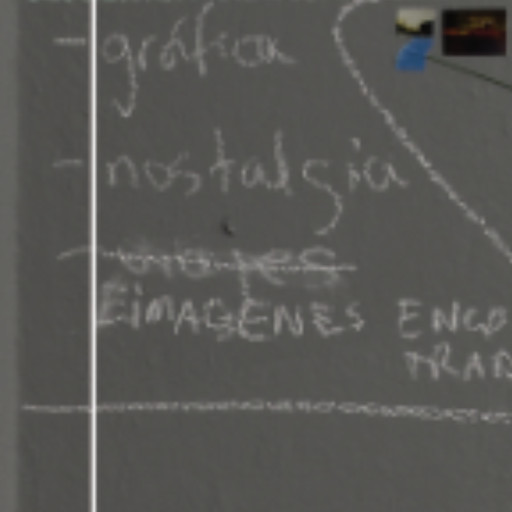 - gráfica
- nostalgia
EiMAGENES ENCO
TRAD